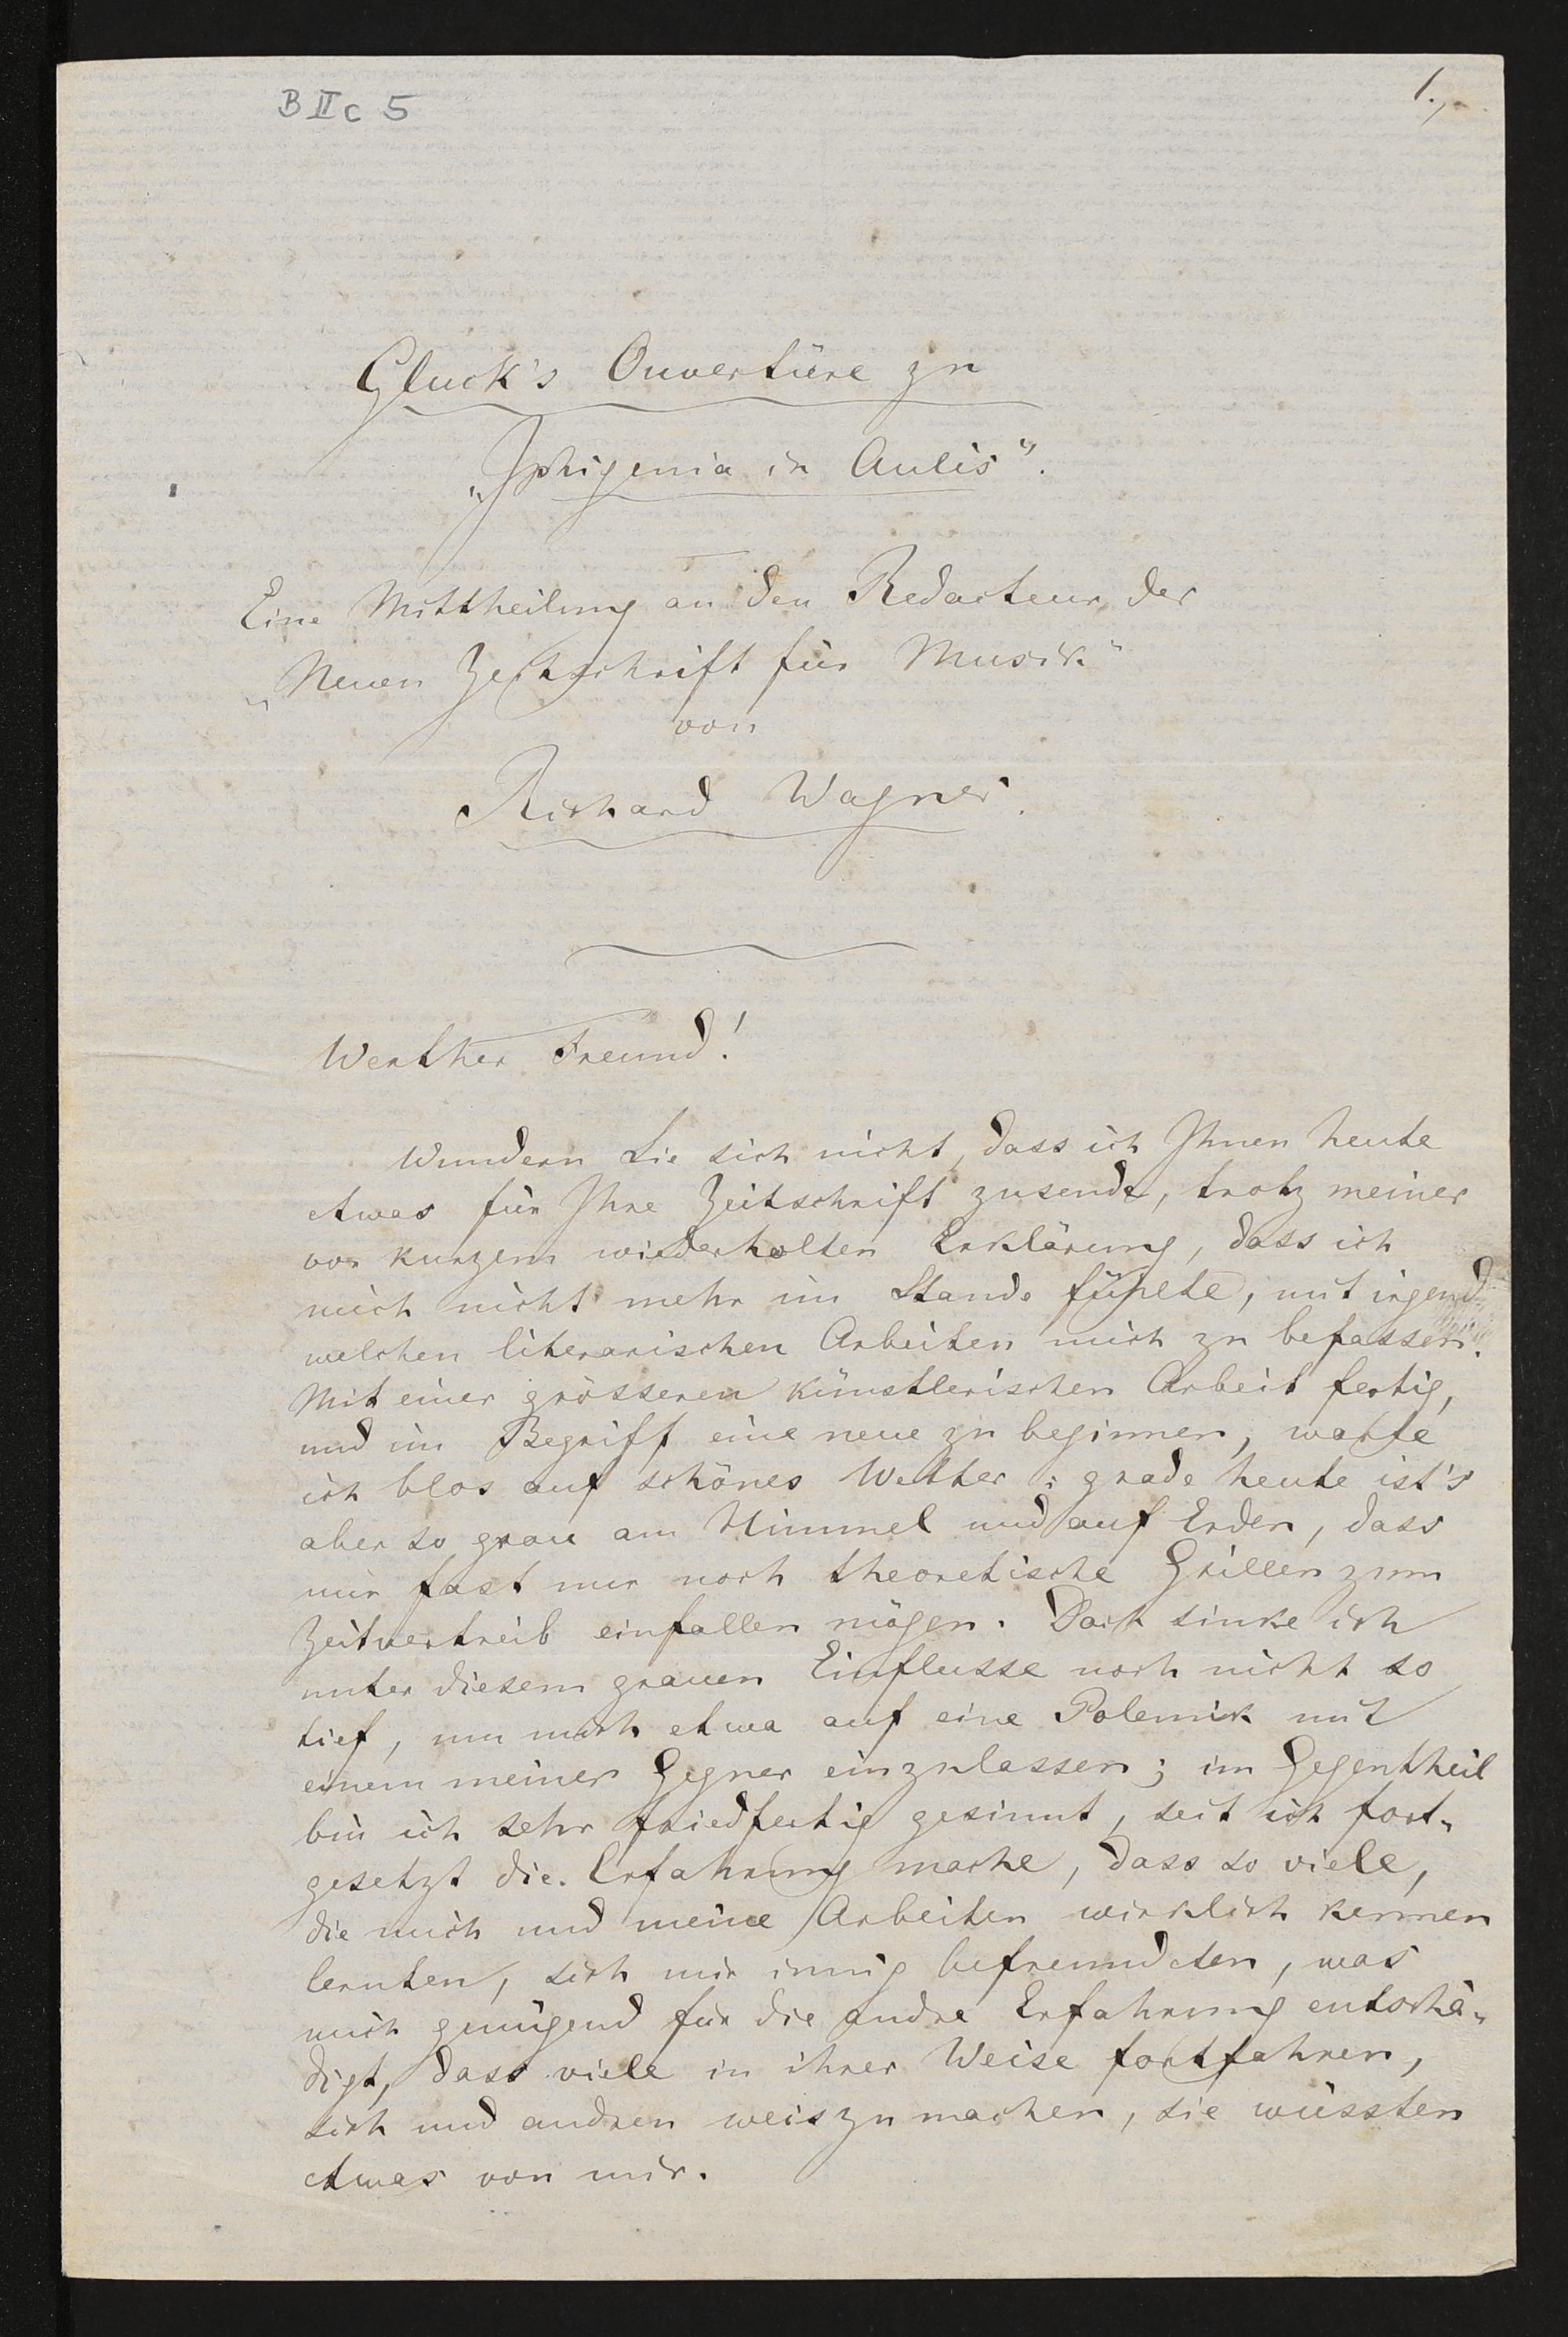 B II c 5
1.,
Gluck's Ouvertüre zu
„Iphigenia in Aulis“.
Eine Mittheilung an den Redacteur der
„Neuen Zeitschrift für Musik“
von
Richard Wagner.
Werther Freund!
Wundern Sie sich nicht, dass ich Ihnen heute
etwas für Ihre Zeitschrift zusende, trotz meiner
vor kurzem wiederholten Erklärung, dass ich
mich nicht mehr im Stande fühlte, mit irgend
welchen literarischen Arbeiten mich zu befassen.
Mit einer grösseren künstlerischen Arbeit fertig,
und im Begriff eine neue zu beginnen, warte
ich blos auf schönes Wetter: grade heute ist's
aber so grau am Himmel und auf Erden, dass
mir fast nur noch theoretische Grillen zum
Zeitvertreib einfallen mögen. Doch sinke ich
unter diesem grauen Einflusse noch nicht so
tief, um mich etwa auf eine Polemik mit
einem meiner Gegner einzulassen; im Gegentheil
bin ich sehr friedfertig gesinnt, seit ich fort-
gesetzt die Erfahrung mache, dass so viele,
die mich und meine Arbeiten wirklich kennen
lernten, sich mir innig befreundeten, was
mich genügend für die andre Erfahrung entschä-
digt, dass viele in ihrer Weise fortfahren,
sich und andren weiszumachen, sie wüssten
etwas von mir.